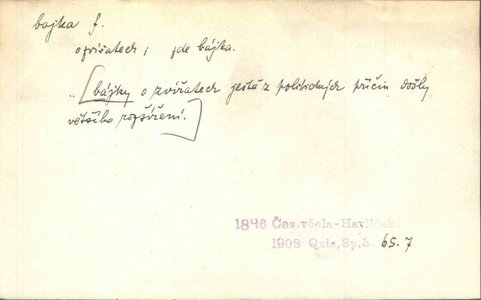 bajka f.
o zvířatech; jde bájka.
„[bájky o zvířatech ještě z politických příčin došly
většího rozšíření.]
1846 Čes.včela-Havlíček.
1908 Quis, Sp.3. 65.7